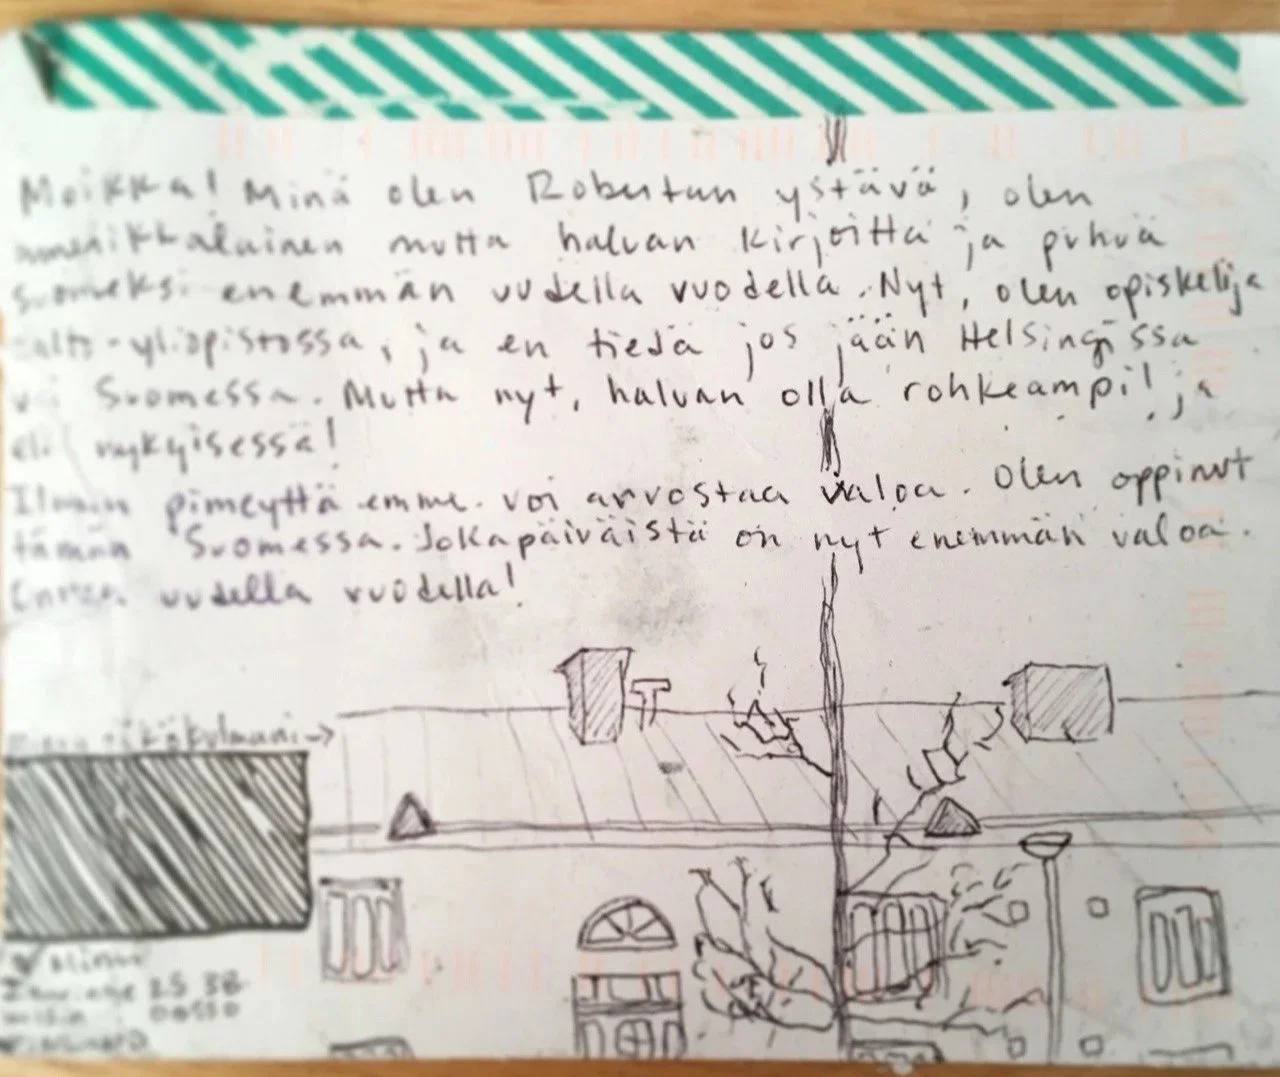 Moikka! Minä olen Robertun ystävä, olen
amerikkalainen mutta haluan kirjoitta ja puhua
suomeksi enemmän uudella vuodella. Nyt, olen opiskelija
aalto-yliopistossa, ja en tiedä jos jään Helsingissa
Suomessa. Mutta nyt, haluan olla rohkeampi! ja
eli nykyisessä!
Ilman pimeyttä emme voi arvostaa valoa. Olen oppinut
tämän Suomessa. Jokapäiväistä on nyt enemmän valoa.
uudella vuodella!
näkökulmani →
00550